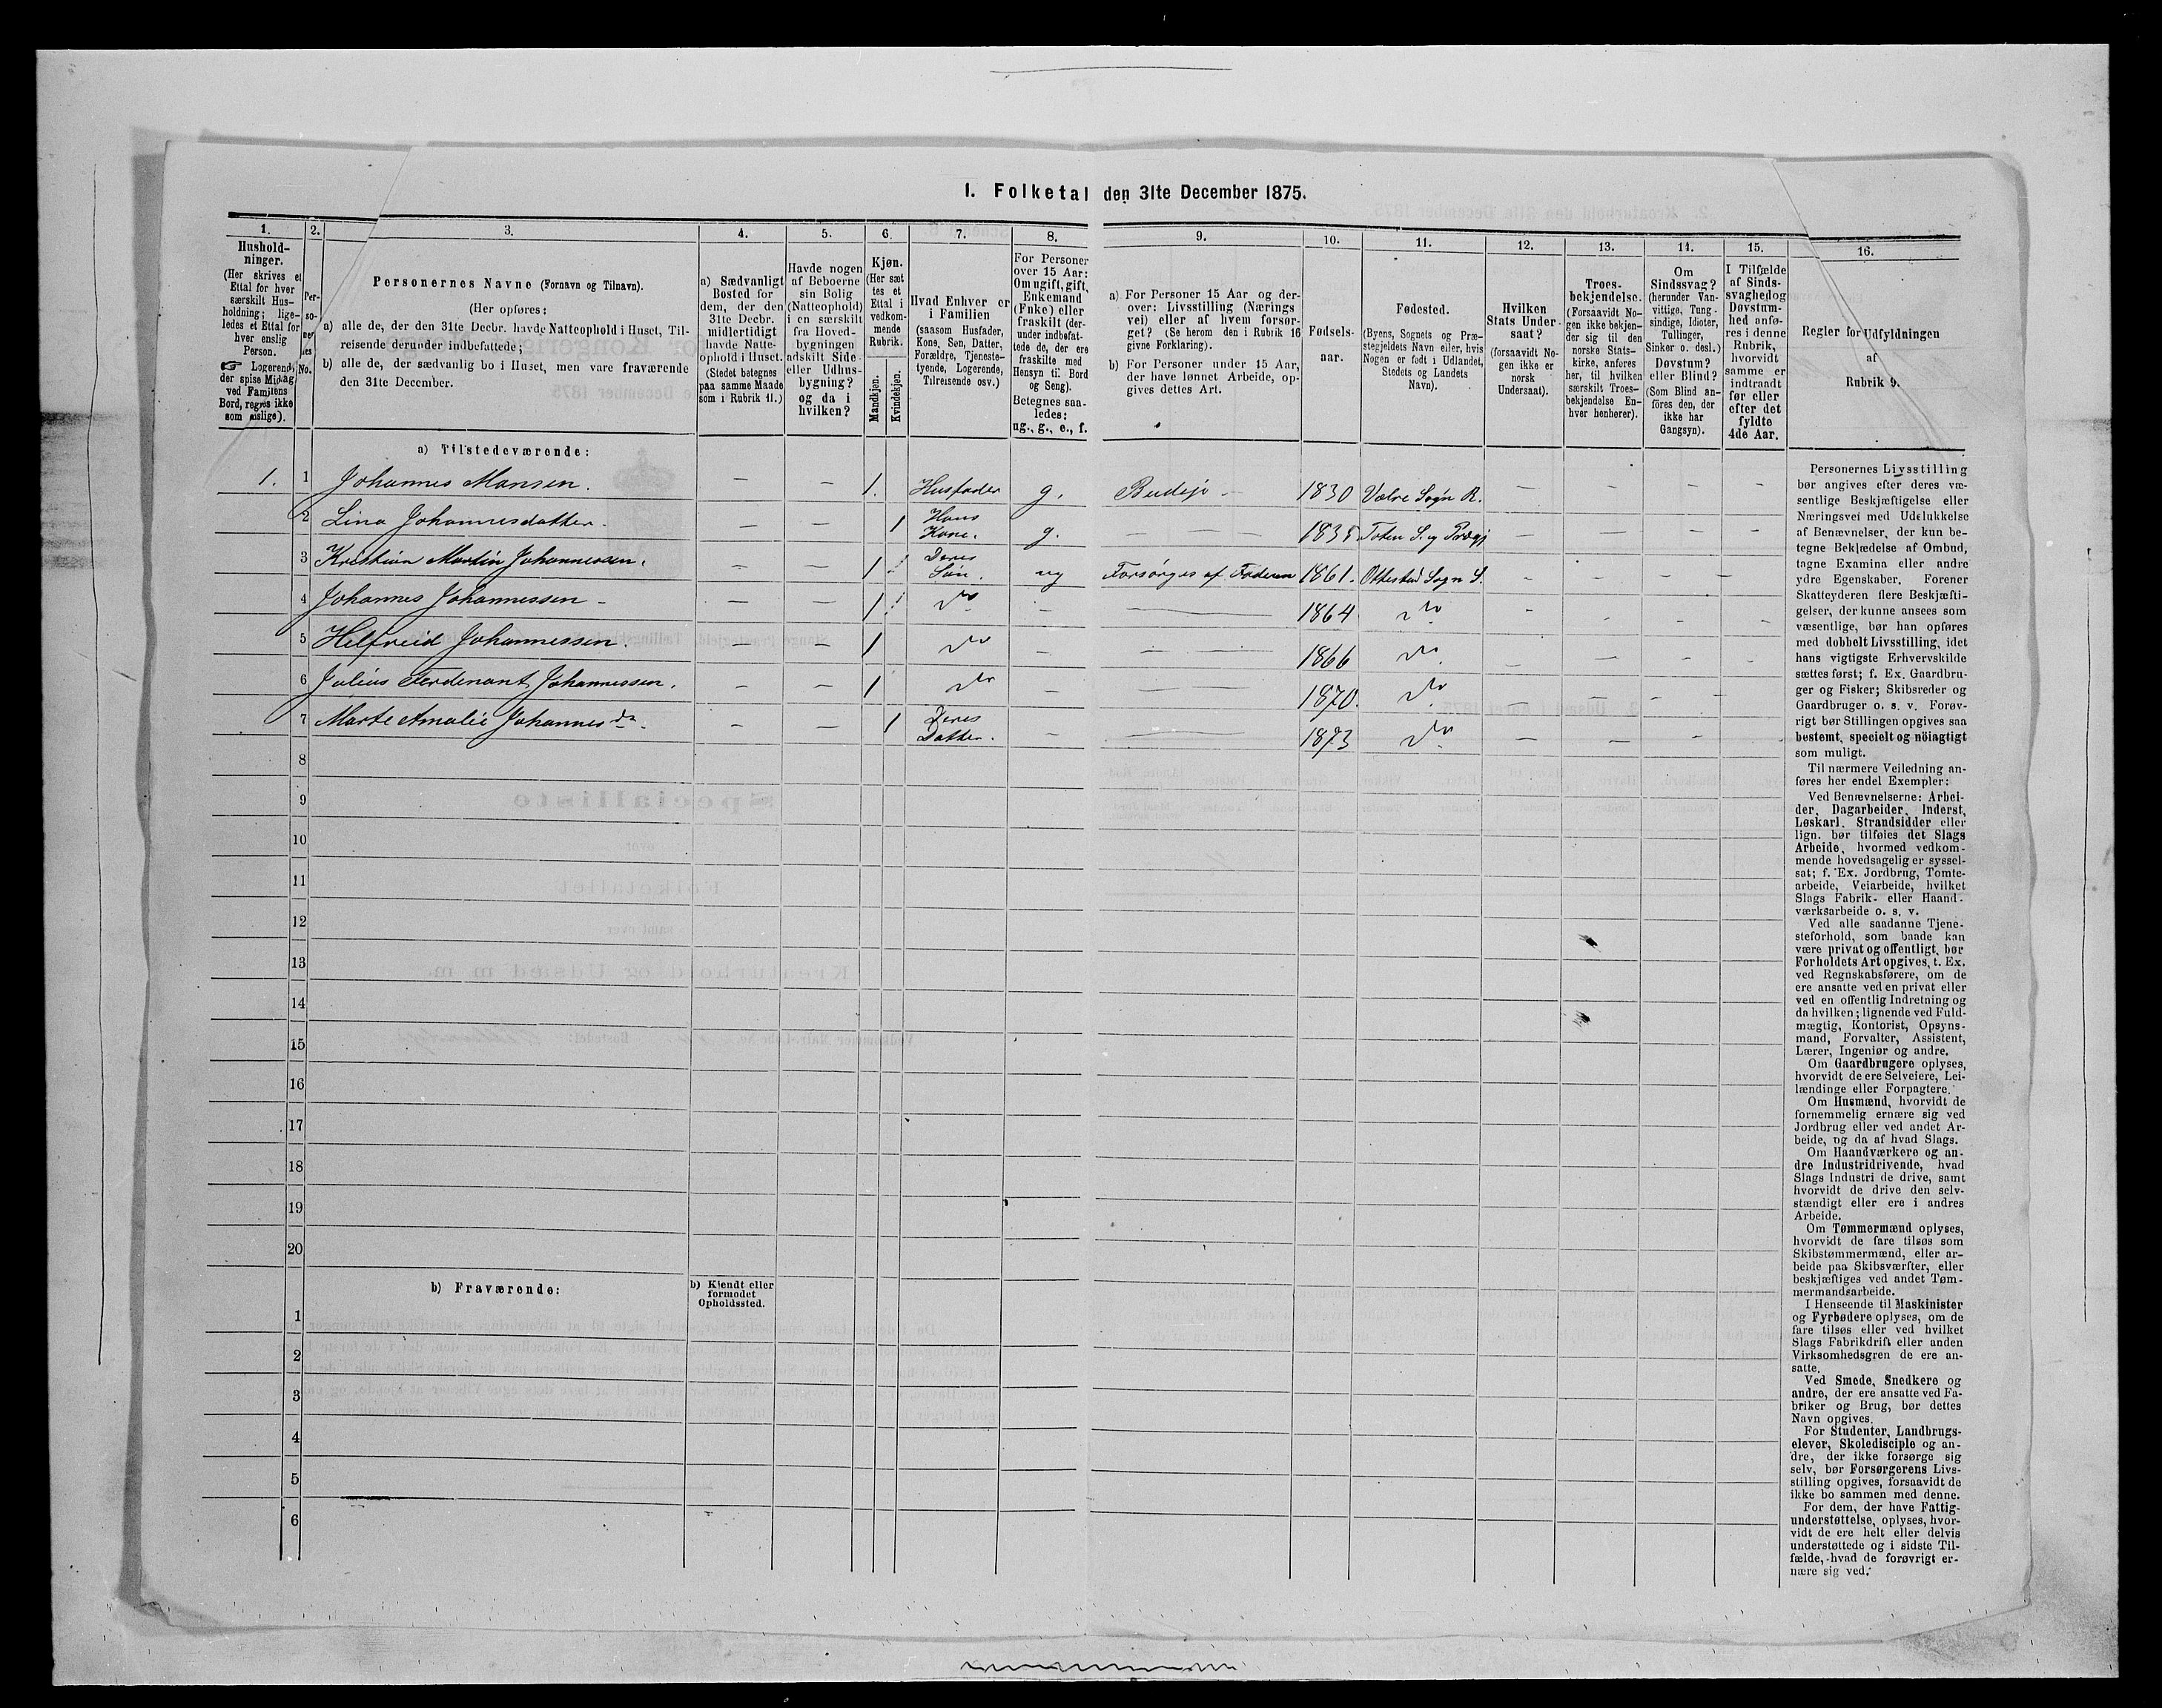 I. Folketal den 31te December 1875.
1.
Hushold-
ninger.
(Her skrives et
Ettal for hver
særskilt Hus-
holdning; lige-
ledes et Ettal for
hver enslig
Person.
☞ Logerende,
der spise Middag
ved Familiens
Bord, regnes ikke
som enslige).
2.
Per-
so-
ner-
nes
No.
3.
Personernes Navne (Fornavn og Tilnavn).
(Her opføres:
a) alle de, der den 31te Decbr. havde Natteophold i Huset, Til-
reisende derunder indbefattede;
b) alle de, der sædvanlig bo i Huset, men vare fraværende
den 31te December.
4.
a) Sædvanligt
Bosted for
dem, der den
31te Decbr.
midlertidigt
havde Natte-
ophold i Huset.
(Stedet betegnes
paa samme Maade
som i Rubrik 11.)
5.
Havde nogen
af Beboerne
sin Bolig
(Natteophold)
i en særskilt
fra Hoved-
bygningen
adskilt Side-
eller Udhus-
bygning?
og da i
hvilken?
6.
Kjøn.
(Her sæt
tes et
Ettal i
vedkom-
mende
Rubrik.
Mandkjøn.
Kvindekjøn.
7.
Hvad Enhver er
i Familien
(saasom Husfader,
Kone, Søn, Datter,
Forældre, Tjeneste-
tyende, Logerende,
Tilreisende osv.)
8.
For Personer
over 15 Aar:
Om ugift, gift,
Enkemand
(Enke) eller
fraskilt (der-
under indbefat-
tede de, der ere
fraskilte med
Hensyn til Bord
og Seng).
Betegnes saa-
ledes:
ug., g., e., f.
9.
a) For Personer 15 Aar og der-
over: Livsstilling (Nærings
vei) eller af hvem forsør-
get? (Se herom den i Rubrik 16
givne Forklaring).
b) For Personer under 15 Aar,
der have lønnet Arbeide, op-
gives dettes Art.
10.
Fødsels-
aar.
11.
Fødested.
(Byens, Sognets og Præ-
stegjeldets Navn eller, hvis
Nogen er født i Udlandet,
Stedets og Landets
Navn).
12.
Hvilken
Stats Under-
saat?
(forsaavidt No-
gen ikke er
norsk
Undersaat).
13.
Troes-
bekjendelse.
(Forsaavidt No-
gen ikke bekjen-
der sig til den
norske Stats-
kirke, anføres
her, til hvilken
særskilt Troes-
bekjendelse En-
hver henhører).
14.
Om
Sindssvag?
(herunder Van-
vittige, Tung-
sindige, Idioter,
Tullinger,
Sinker o. desl.)
Døvstum?
eller Blind?
(Som Blind an-
føres den, der
ikke har
Gangsyn).
15.
I Tilfælde
af Sinds-
svaghed og
Døvstum-
hed anfø-
res i denne
Rubrik,
hvorvidt
samme er
indtraadt
før eller
efter det
fyldte
4de Aar.
16.
Regler for Udfyldningen
af
Rubrik 9.
a) Tilstedeværende:
1. 1 Johannes Hansen. – – 1. Husfader g. – 1830 R. – – – –
2 Lina Johannesdatter. – – 1 Hans Kone. g. – – Toten S. og Prægj – – – –
3 Kristian Martin Johannessen. – – 1 Deres Søn. ug Forsørges af Faderen 1861. Ottestad Sogn S. – – – –
4 Johannes Johannessen – – – 1 do – – 1864 do – – – –
5 Helfreid Johannessen. – – 1 do – – 1866 do – – – –
6 Julius Ferdenant Johannessen. – – 1 do – – 1870. do – – – –
7 Marte Amalie Johannesdr. – – 1 Deres Datter. – – 1873 do – – – –
8
9
10
11
12
13
14
15
16
17
18
19
20
b) Fraværende:
b) Kjendt eller
formodet
Opholdssted.
1
2
3
4
5
6
Personernes Livsstilling
bør angives efter deres væ-
sentlige Beskjæftigelse eller
Næringsvei med Udelukkelse
af Benævnelser, der kun be-
tegne Beklædelse af Ombud,
tagne Examina eller andre
ydre Egenskaber. Forener
Skatteyderen flere Beskjæfti-
gelser, der kunne ansees som
væsentlige, bør han opføres
med dobbelt Livsstilling, idet
hans vigtigste Erhvervskilde
sættes først; f. Ex. Gaardbru-
ger og Fisker; Skibsreder og
Gaardbruger o. s. v. Forøv-
rigt bør Stillingen opgives saa
bestemt, specielt og nöiagtigt
som muligt.
Til nærmere Veiledning an-
føres her endel Exempler:
Ved Benævnelserne: Arbei-
der, Dagarbeider, Inderst,
Løskarl, Strandsidder eller
lign. bør tilføies det Slags
Arbeide, hvormed vedkom-
mende hovedsagelig er syssel-
sat; f. Ex. Jordbrug, Tomte-
arbeide, Veiarbeide, hvilket
Slags Fabrik- eller Haand-
værksarbeide o. s. v.
Ved alle saadanne Tjene-
steforhold, som baade kan
være privat og offentligt, bør
Forholdets Art opgives, t. Ex.
ved Regnskabsførere, om de
ere ansatte ved en privat eller
ved en offentlig Indretning og
da hvilken; lignende ved Fuld-
mægtig, Kontorist, Opsyns-
mand, Forvalter, Assistent,
Lærer, Ingeniør og andre.
Om Gaardbrugere oplyses,
hvorvidt de ere Selveiere, Lei-
lændinge eller Forpagtere.
Om Husmænd, hvorvidt de
fornemmelig ernære sig ved
Jordbrug eller ved andet Ar-
beide, og da af hvad Slags.
Om Haandværkere og an-
dre Industridrivende, hvad
Slags Industri de drive, samt
hvorvidt de drive den selv-
stændigt eller ere i andres
Arbeide.
Om Tømmermænd oplyses,
hvorvidt de fare tilsøs som
Skibstømmermænd, eller ar-
beide paa Skibsværfter, eller
beskjæftiges ved andet Tøm-
mermandsarbeide.
I Henseende til Maskinister
og Fyrbødere oplyses, om de
fare tilsøs eller ved hvilket
Slags Fabrikdrift eller anden
Virksomhedsgren de ere an-
satte.
Ved Smede, Snedkere og
andre, der ere ansatte ved Fa-
briker og Brug, bør dettes
Navn opgives.
For Studenter, Landbrugs-
elever, Skoledisciple og an-
dre, der ikke forsørge sig
selv, bør Forsørgerens Livs-
stilling opgives, forsaavidt de
ikke bo sammen med denne.
For dem, der have Fattig-
understøttelse, oplyses, hvor-
vidt de ere helt eller delvis
understøttede og i sidste Til-
fælde, hvad de forøvrigt er-
nære sig ved.